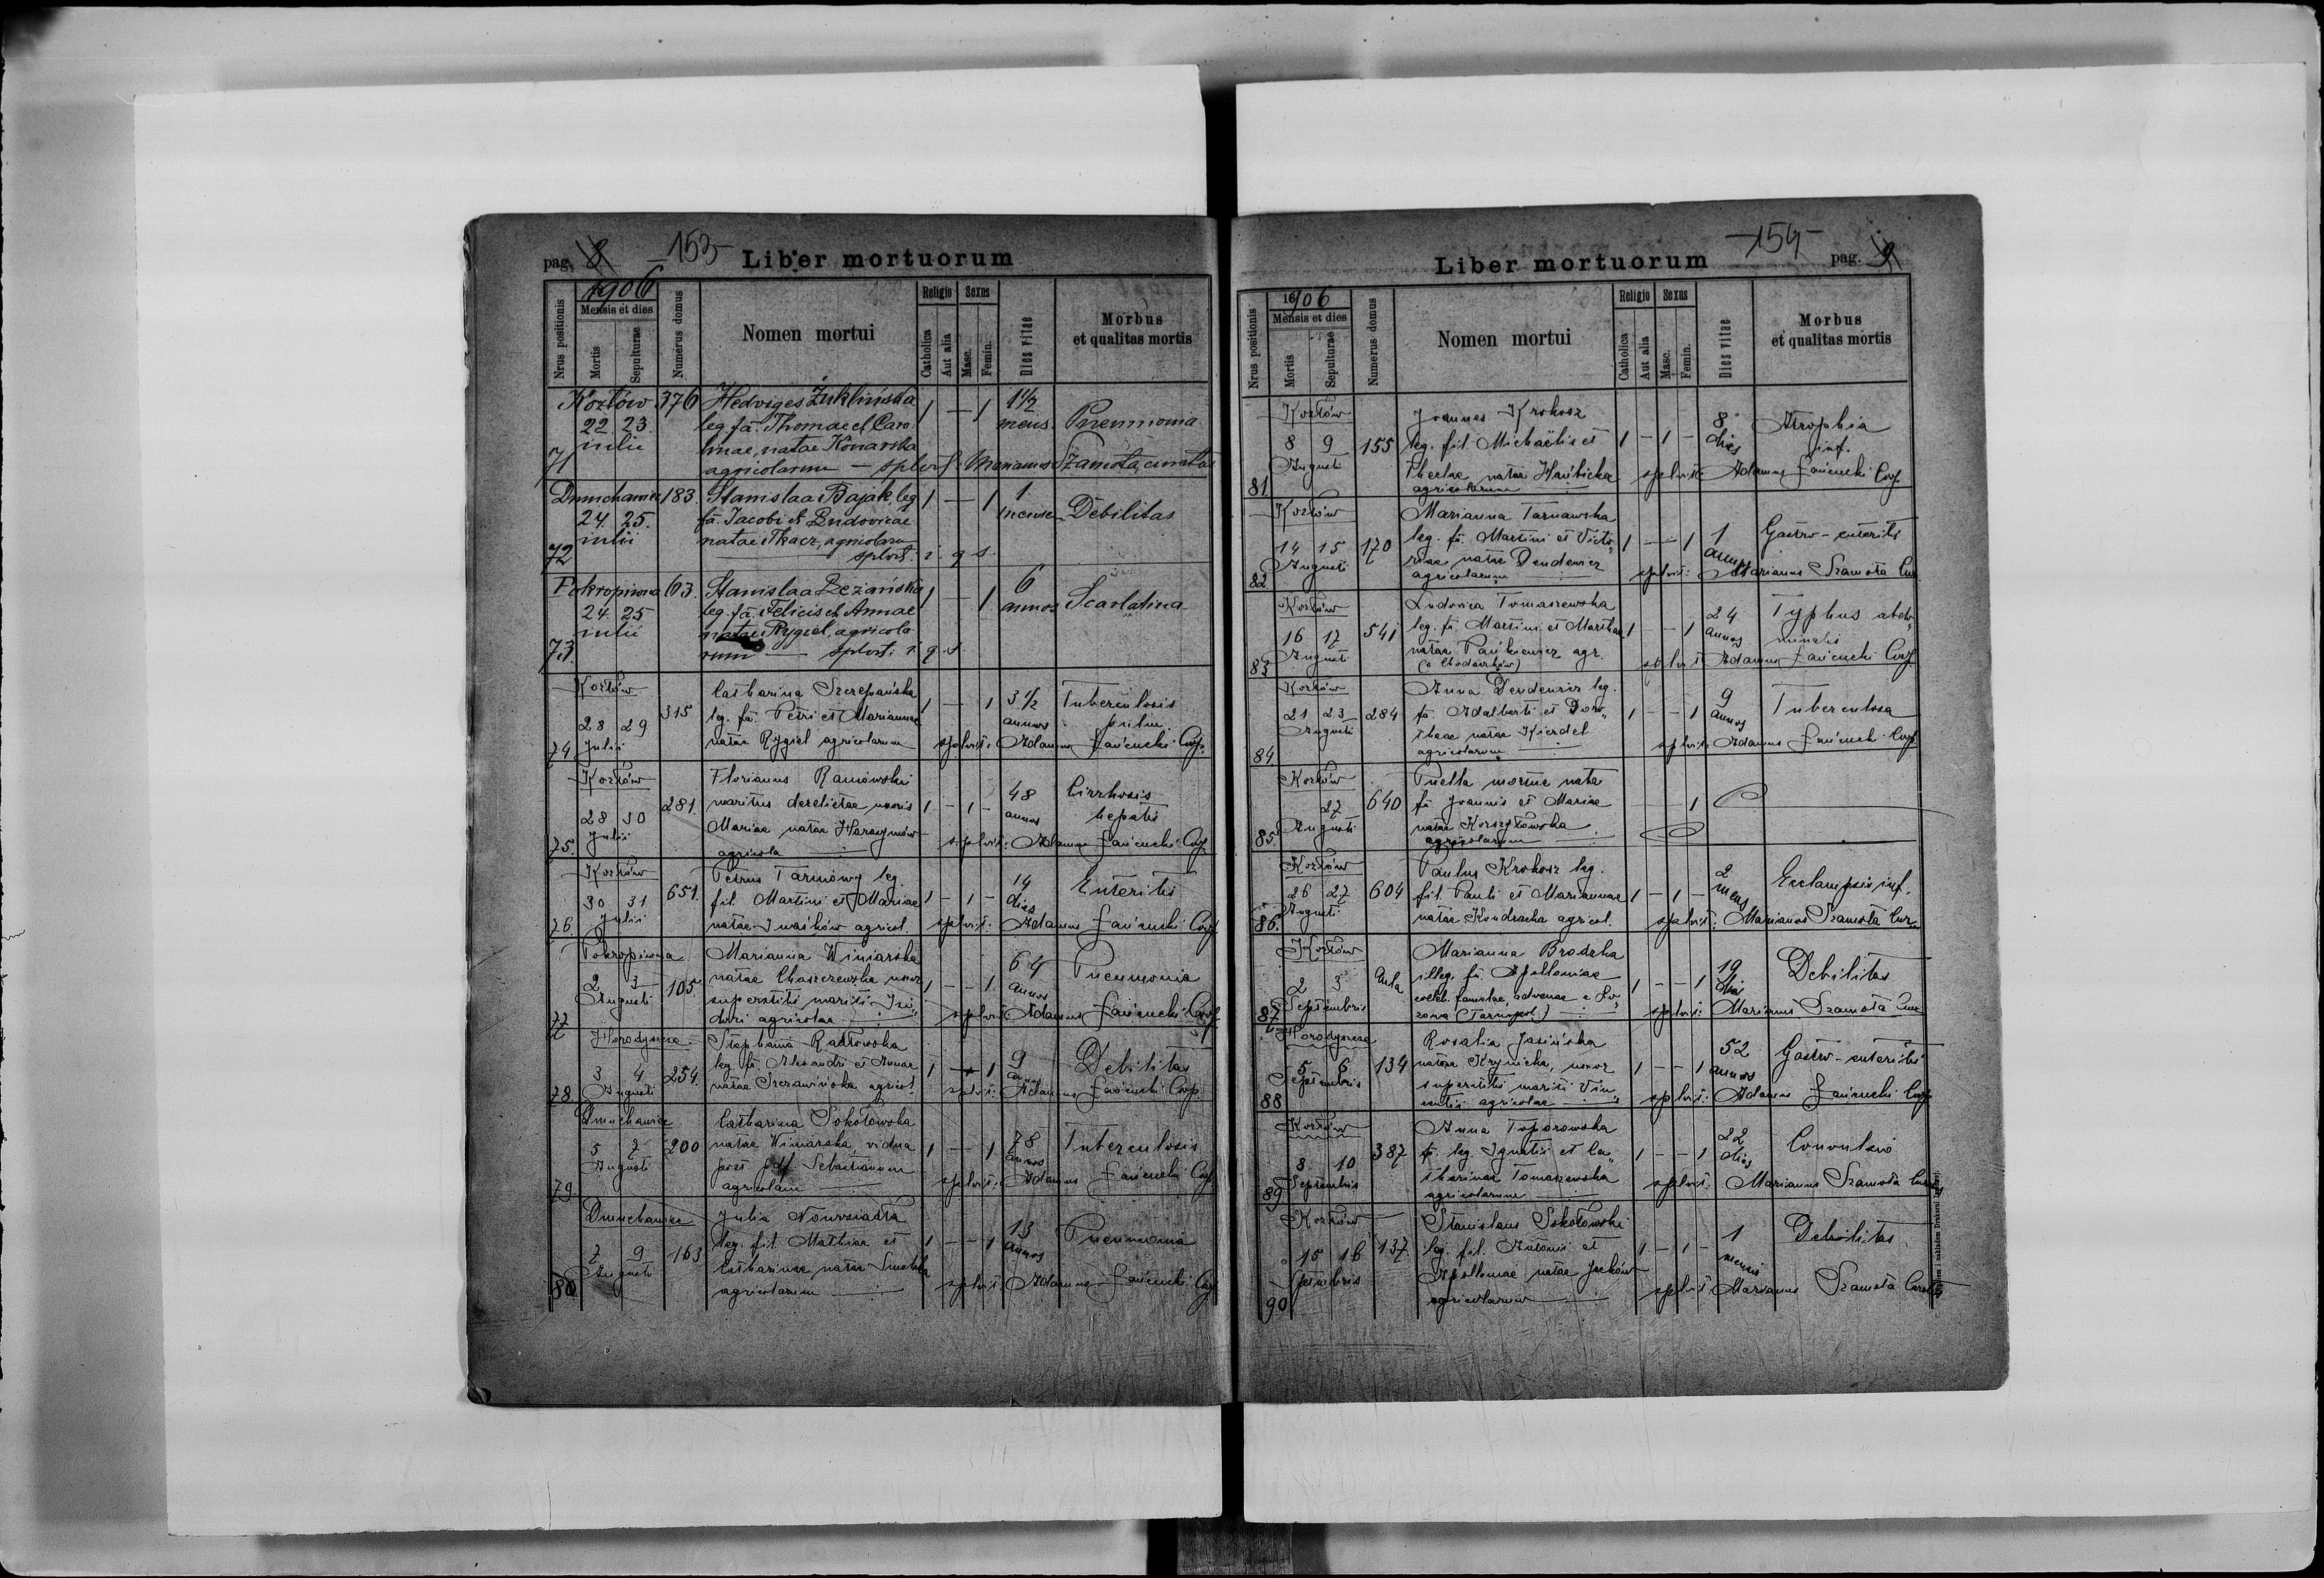 pag. 8 -153- Liber mortuorum
1906
Nrus positionis
Mensis et dies
Mortis
Sepulturae
Numerus domus
Nomen mortui
Religio
Catholica
Aut alia
Sexus
Masc.
Femin.
Dies vitae
Morbus
et qualitas mortis
Kozłów 376 Hedviges Żuklińska 1 — 1 1 1/2
22 23 leg. fa. Thomae et Caro- mens. Pneumonia
julii linae, natae Konarska
71 agricolarum — splvit: Marianus Szamota, curatus
Dmuchawiec 183 Stanislaa Bajak leg. 1 — 1 1
24 25. fa. Jacobi et Ludovicae mense Debilitas
julii natae Tkacz, agricolarum
72 splvit: i. q. s.
Pokropiwna 63. Stanislaa Leżańska 1 — 1 6
24 25 leg. fa. Felicis et Annae annos Scarlatina
julii natae Rygiel, agricola-
73. rum — splvit: i. q. s.
Kozłów Catharina Szczepańska
28 29 315 leg. fa. Petri et Mariannae 1 — 1 3 1/2 annos Tuberculosis pulm.
74 Julii natae Rygiel agricolarum splvit: Adamus Łańcucki Coop.
Kozłów Florianus
28 30 281. maritus derelictae uxoris 1 — 1 — 48 annos Cirrhosis hepatis
Julii Mariae natae Harasymów
75. agricola splvit: Adamus Łańcucki Coop.
Kozłów Petrus Tarnowy leg.
30 31 651. fil. Martini et Mariae 1 — 1 — 14 dies Enteritis
76. Julii natae Iwaśków agricol. splvit: Adamus Łańcucki Coop.
Pokropiwna Marianna Winiarska
2 3 105. natae Chaszczewska uxor 1 — — 1 64 annos Pneumonia
Augusti superstitis mariti Isi-
77 dori agricolae splvit: Adamus Łańcucki Coop.
Horodyszcze Stephania Radłowska
3 4 254. leg. fa. Alexandri et Annae 1 — 1 9 Debilitas
78. Augusti natae agricol. splvit: Adamus Łańcucki Coop.
Dmuchawiec Catharina Sokołowska
5 7 200 natae Winiarska, vidua 1 — — 1 78 annos Tuberculosis
Augusti post def. Sebastianum
79. agricolam splvit: Adamus Łańcucki Coop.
Dmuchawiec Julia Nowosiadła
7 9 163 leg. fil. Mathiae et 1 — — 1 13 annos Pneumonia
Augusti Catharinae natae
80. agricolarum splvit: Adamus Łańcucki Coop.
Liber mortuorum -154- pag. 9
1906
Nrus positionis
Mensis et dies
Mortis
Sepulturae
Numerus domus
Nomen mortui
Religio
Catholica
Aut alia
Sexus
Masc.
Femin.
Dies vitae
Morbus
et qualitas mortis
Kozłów Joannes Krokosz
8 9 155 leg. fil. Michaëlis et 1 — 1 — 8 dies Atrophia inf.
Augusti Theclae natae splvit: Adamus Łańcucki Coop.
81. agricolarum
Kozłów Marianna Tarnawska
14 15 170 leg. fa. Martini et Victo- 1 — — 1 1 Gastro-enteritis
Augusti riae natae Dendewicz
82 agricolarum splvit: Marianus Szamota Cur.
Kozłów Ludovica Tomaszewska
16 17 541 leg. fa. Martini et Marthae 1 — — 1 24 annos Typhus abdo-
Augusti natae Pańkiewicz agr. minalis
83 splvit: Adamus Łańcucki Coop.
Kozłów Anna Dendewicz leg.
21 23 284 fa. Adalberti et Doro- 1 — — 1 9 annos Tuberculosa
Augusti theae natae Kierdel
84. agricolarum splvit: Adamus Łańcucki Coop.
Kozłów Puella mortue nata
27 640 fa. Joannis et Mariae — — 1
Augusti natae Korszyłowska
85. agricolarum
Kozłów Paulus Krokosz leg.
26 27 604 fil. Pauli et Mariannae 1 — 1 — 2 mens. Eclampsis inf.
86. Augusti natae Kondracka agricol. splvit: Marianus Szamota Cur.
Kozłów Marianna Brodzka
2 3 Aula illeg. fa. Apolloniae 1 — — 1 19 dies Debilitas
Septembris coelib. famulae, advenae e Ło-
87. zowa (Tarnopol) splvit: Marianus Szamota Cur.
Horodyszcze Rosalia Jasińska
5 6 134 natae Krynicka, uxor 1 — — 1 52 annos Gastro-enteritis
Septembris superstitis mariti Vin-
88 centii agricolae splvit: Adamus Łańcucki Coop.
Kozłów Anna Toporowska
8 10 387 fa. leg. Ignatii et Ca- 1 — — 1 22 dies Convulsio
Septembris tharinae Tomaszewska
89 agricolarum splvit: Marianus Szamota Curatus
Kozłów Stanislaus Sokołowski
15 16 137. leg. fil. Antonii et 1 — 1 — 1 mensis Debilitas
Septembris Apolloniae natae Jacków
90 agricolarum splvit: Marianus Szamota Curatus